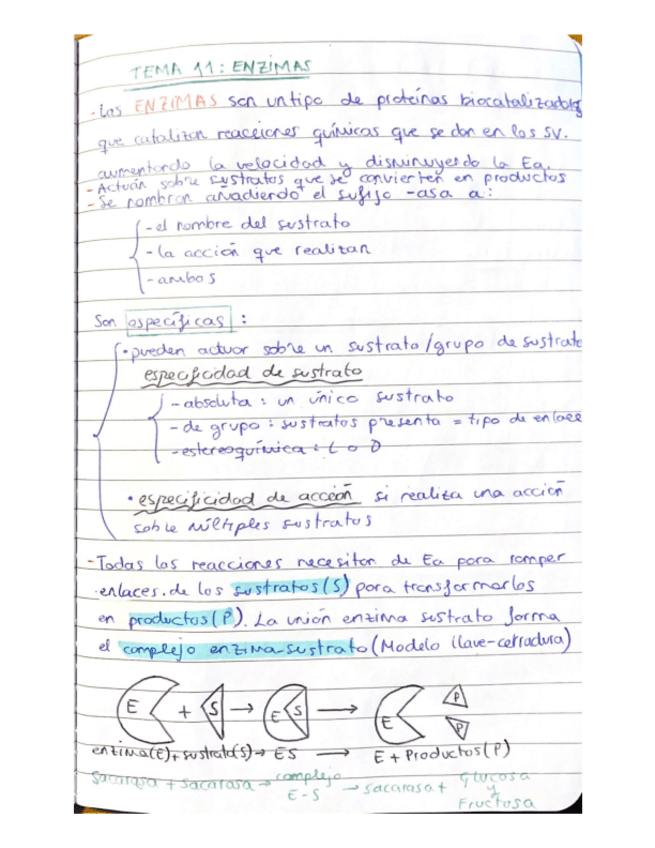 TEMA 11: ENZIMAS
- Las ENZIMAS son un tipo de proteínas biocatalizadoras
que catalizan reacciones químicas que se dan en los SV.
aumentando la velocidad y disminuyendo la Ea.
- Actúan sobre sustratos que se convierten en productos
- Se nombran añadiendo el sufijo -asa a:
- el nombre del sustrato
- la acción que realizan
- ambos
Son específicas :
• pueden actuar sobre un sustrato/grupo de sustrato
especificidad de sustrato
- absoluta : un único sustrato
- de grupo : sustratos presenta = tipo de enlace
- estereoquímica : L o D
• especificidad de acción si realiza una acción
sobre múltiples sustratos
- Todas las reacciones necesitan de Ea para romper
enlaces de los sustratos (S) para transformarlos
en productos (P). La unión enzima sustrato forma
el complejo enzima-sustrato (Modelo llave-cerradura)
E + S → E S → E P P
enzima(E) + sustrato(S) → ES → E + Productos (P)
Sacarasa + sacarasa → complejo E-S → sacarasa + Glucosa y Fructosa